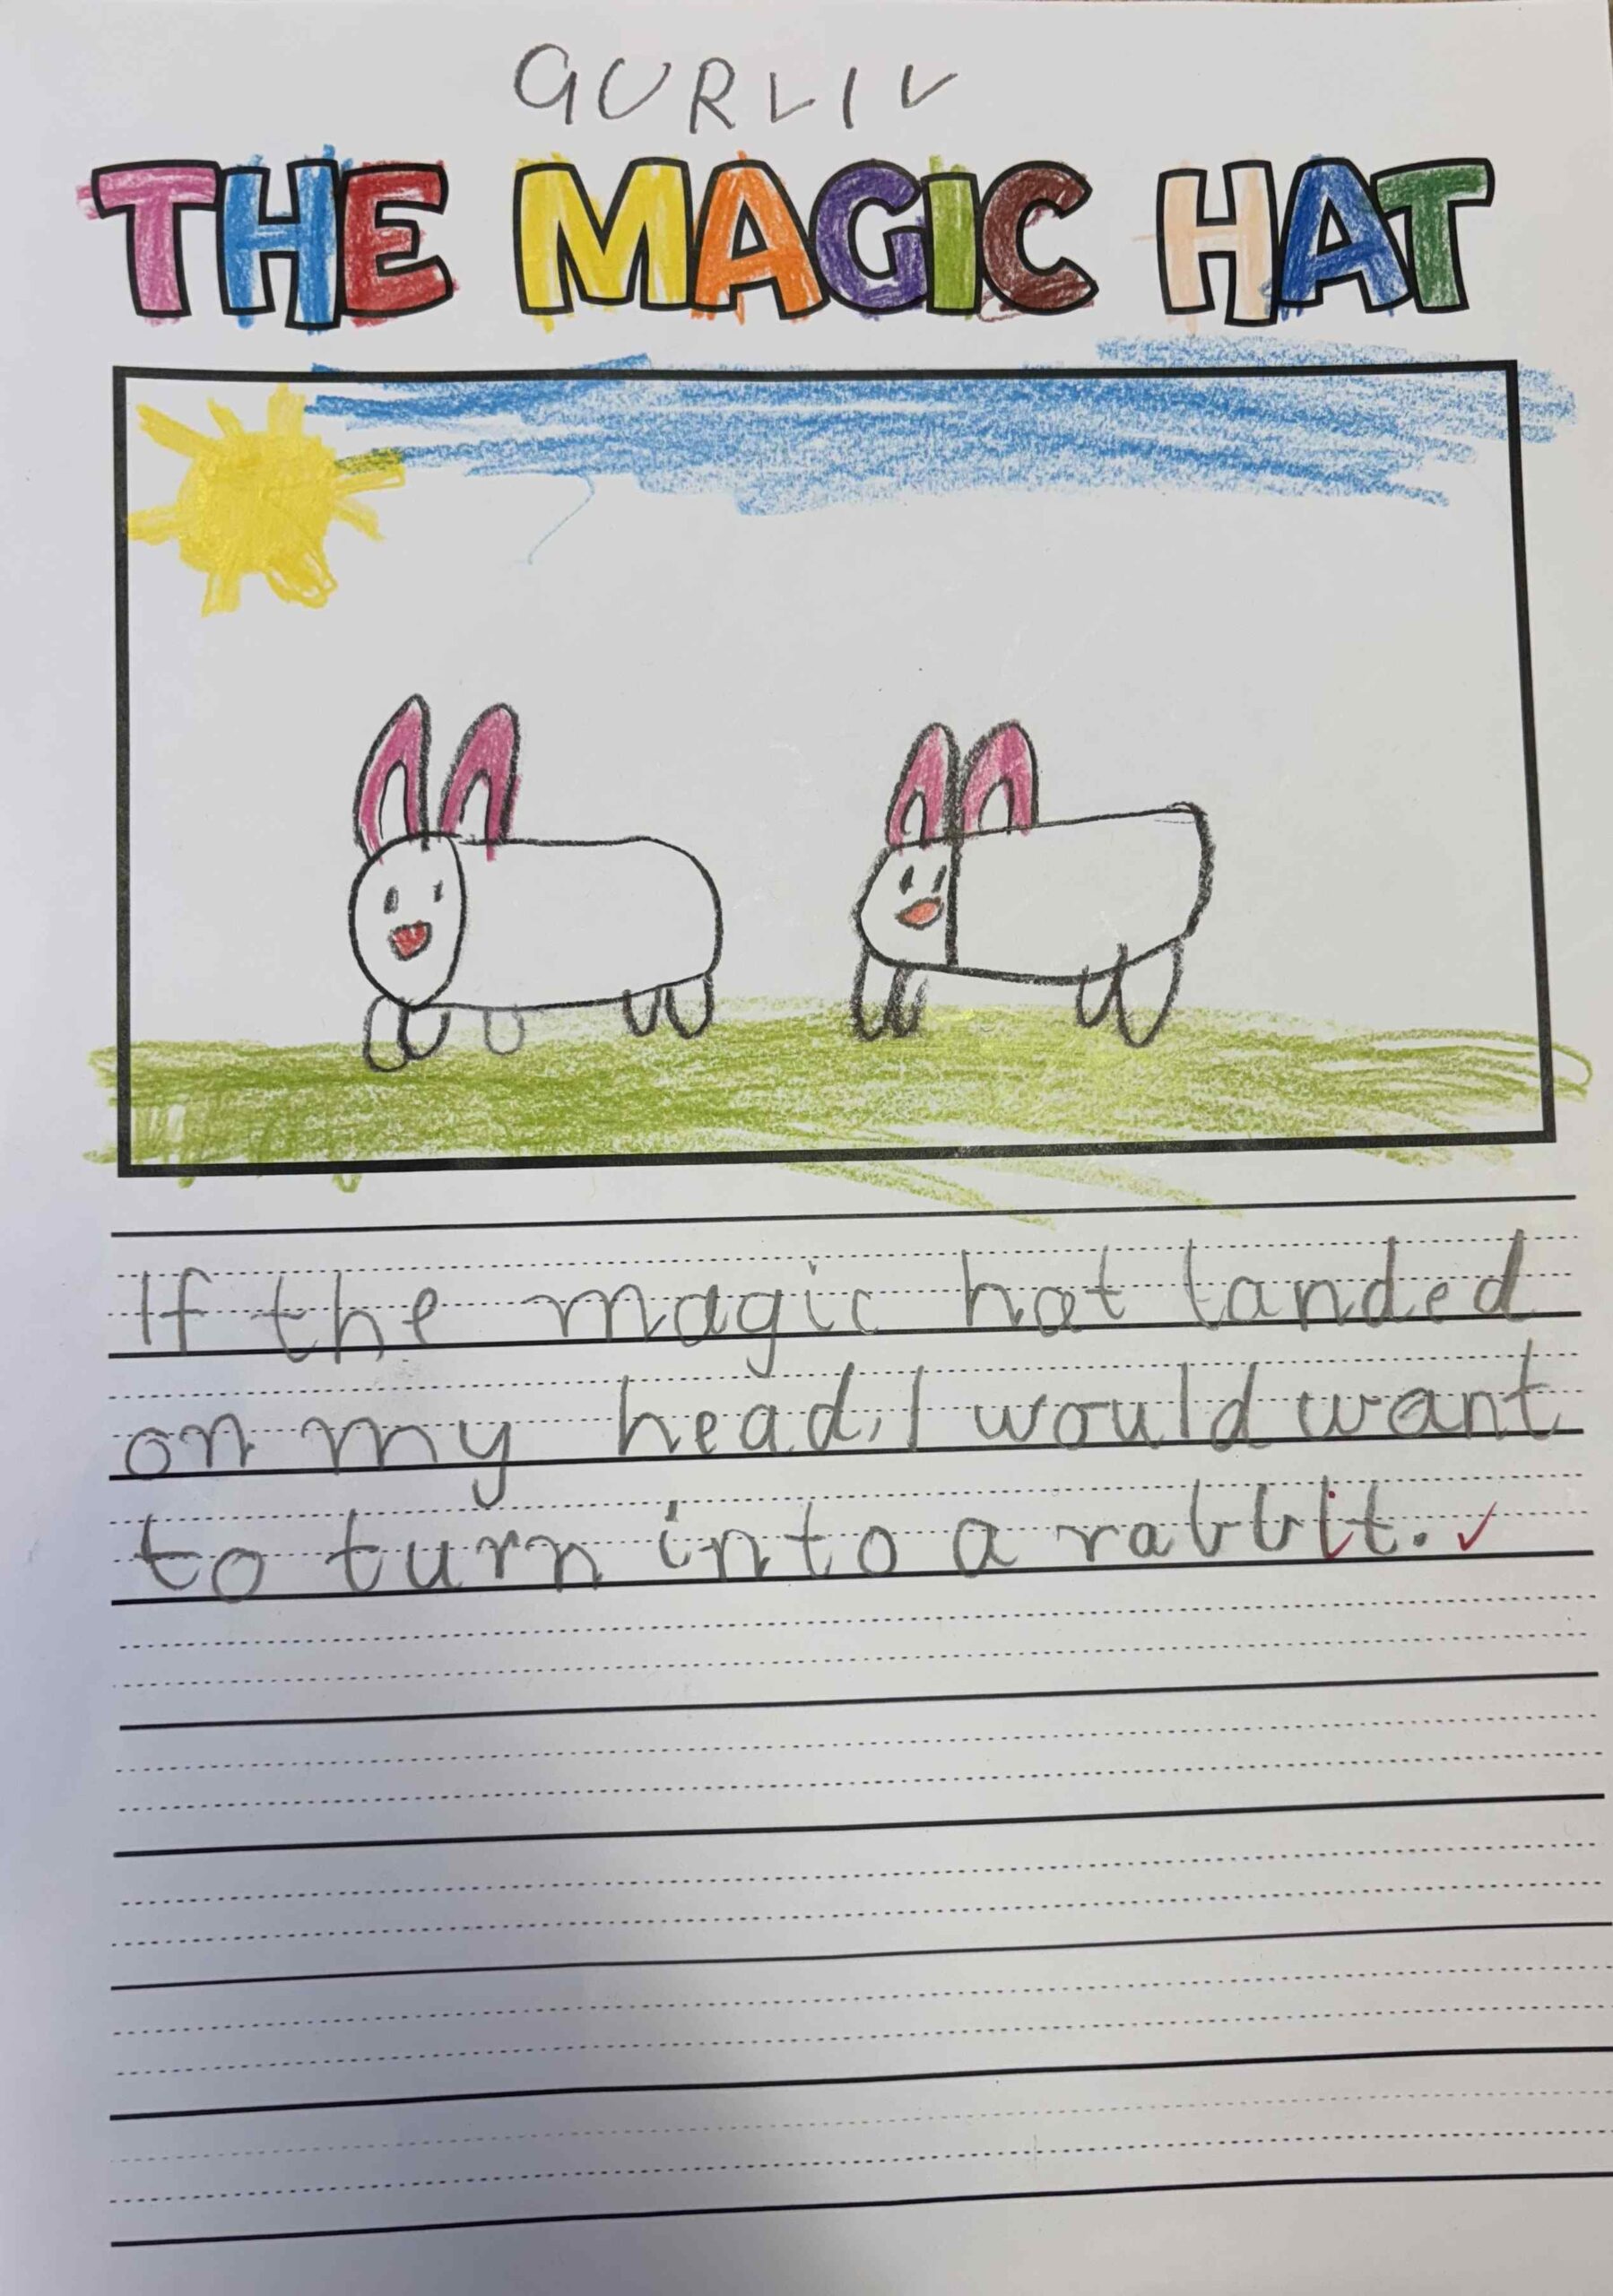 GURLIV
THE MAGIC HAT
If the magic hat landed
on my head, I would want
to turn into a rabbit.